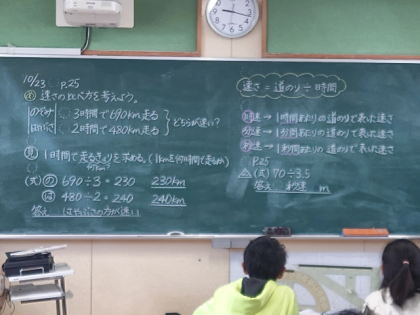 10/23 P.25
め 速さの比べ方を考えよう。
のぞみ 3時間で690km走る
はやぶさ 2時間で480km走る
どちらが速い?
見 1時間で走るきょりを求める。(1kmを何時間で走るか)
(式) の 690÷3=230 230km
は 480÷2=240 240km
答え はやぶさの方が速い
速さ=道のり÷時間
時速→1時間あたりの道のりで表した速さ
分速→1分間あたりの道のりで表した速さ
秒速→1秒間あたりの道のりで表した速さ
P.25
(式) 70÷3.5
答え 秒速 m